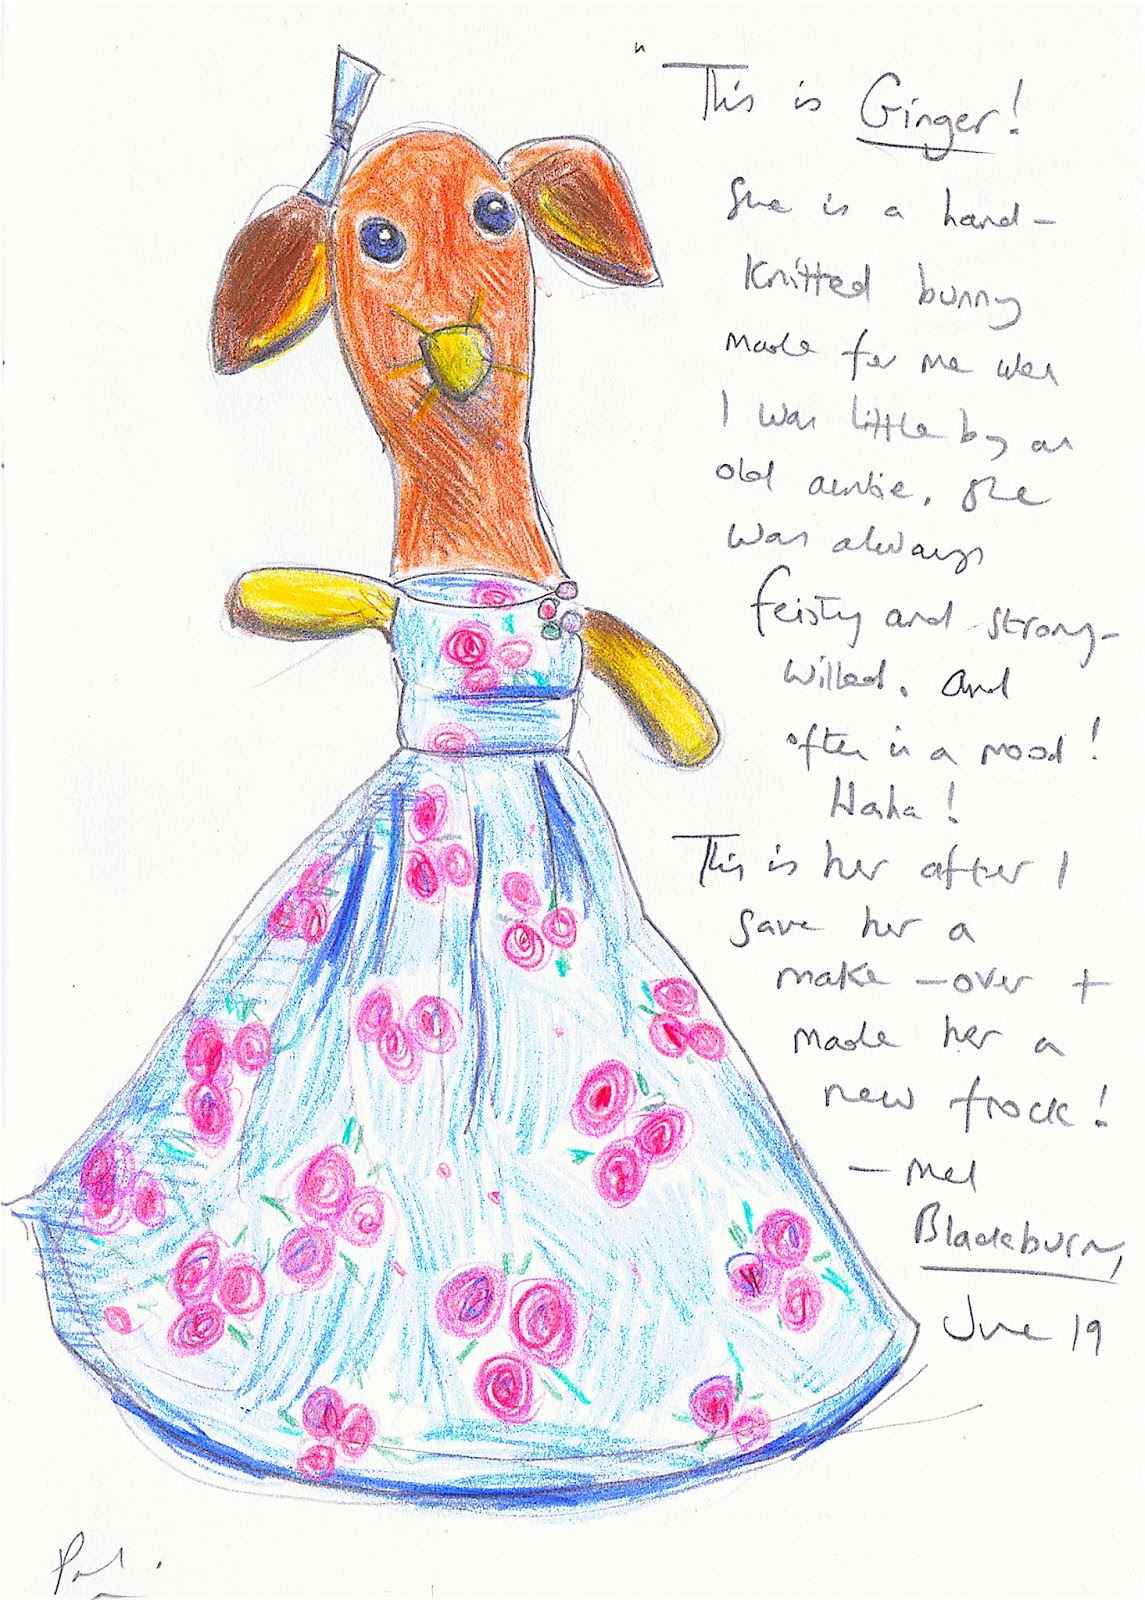 "This is Ginger!
She is a hand-
knitted bunny
made for me wen
I was little by an
old auntie. She
was always
feisty and strong-
willed. and
often in a mood!
Haha!
This is her after I
gave her a
make-over +
made her a
new frock!
- Mel
Blackburn,
June 19